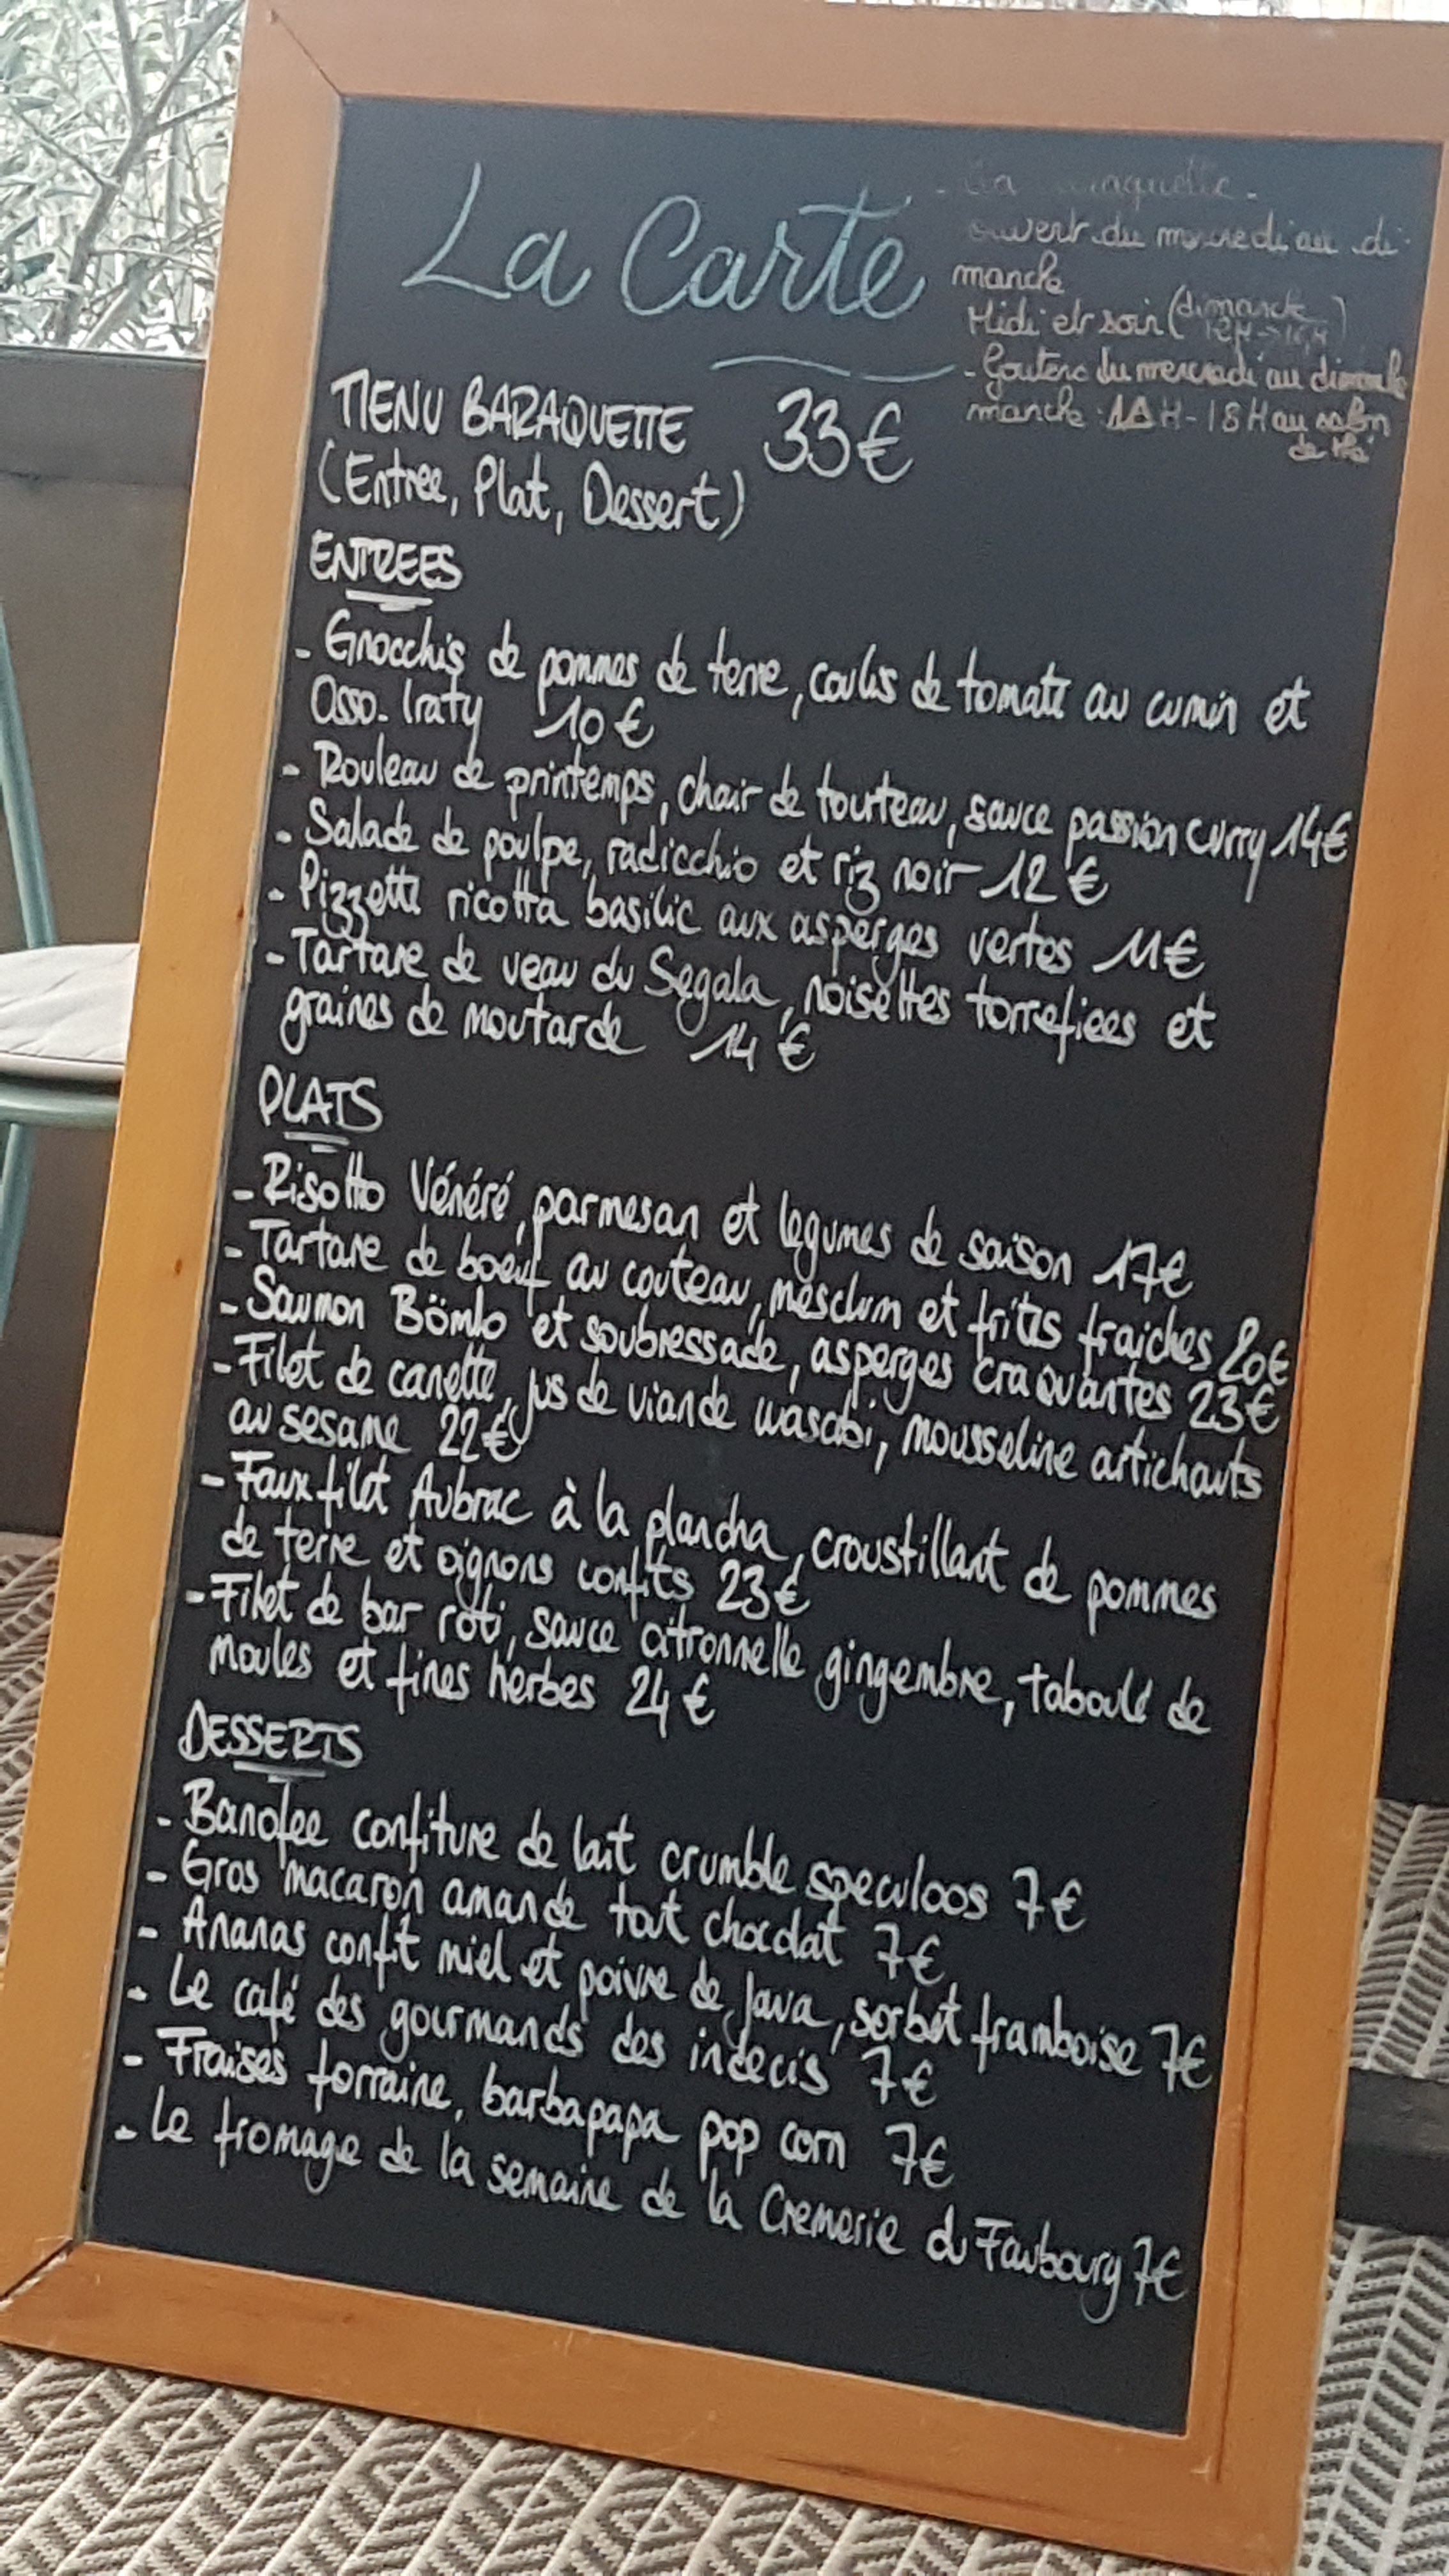 La Carte
ouvert du mercredi au di
manche
Midi et soir (dimanche
- Gouters du mercredi au dimanche
manche - 18H au salon
de thé
MENU BARAQUETTE 33€
(Entree, Plat, Dessert)
ENTREES
- Gnocchis de pommes de terre, coulis de tomate au cumin et
Osso. Iraty 10€
- Rouleau de printemps, chair de tourteau, sauce passion curry 14€
- Salade de poulpe, radicchio et riz noir 12€
- Pizzetta ricotta basilic aux asperges vertes 11€
- Tartare de veau du Segala, noisettes torrefiees et
graines de moutarde 14€
PLATS
- Risotto Vénéré, parmesan et legumes de saison 17€
- Tartare de boeuf au couteau, mesclum et frites fraiches 20€
- Saumon Bömlo et soubressade, asperges craquantes 23€
- Filet de canette, jus de viande wasabi, mousseline artichauts
au sesame 22€
- Faux filet Aubrac à la plancha, croustillant de pommes
de terre et oignons confits 23€
- Filet de bar roti, sauce citronnelle gingembre, taboulé de
moules et fines herbes 24€
DESSERTS
- Banofee confiture de lait crumble speculoos 7€
- Gros macaron amande tout chocolat 7€
- Ananas confit miel et poivre de Java, sorbet framboise 7€
- Le café des gourmands des indecis 7€
- Fraises torraine, barbapapa pop corn 7€
- Le fromage de la semaine de la Cremerie du Faubourg 7€